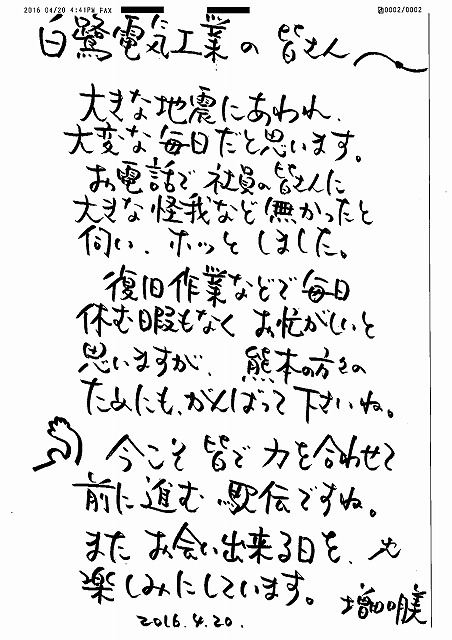 2016 04/20 4:41PM FAX 0002/0002
白鷺電気工業の皆さんへ
大きな地震にあわれ、
大変な毎日だと思います。
お電話で社員の皆さんに
大きな怪我など無かったと
伺い、ホッとしました。
復旧作業などで毎日
休む暇もなくお忙がしいと
思いますが、熊本の方々の
ためにも、がんばって下さいね。
今こそ皆で力を合わせて
前に進む駅伝ですね。
またお会い出来る日を、
楽しみにしています。
増田明美
2016.4.20.